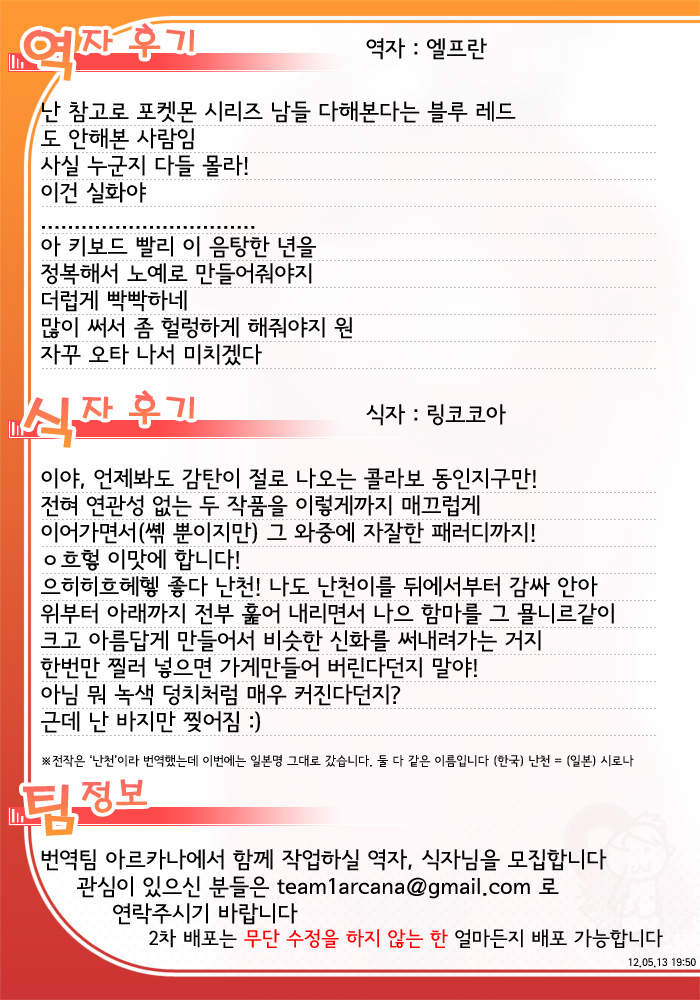 역자 후기
역자 : 엘프란
난 참고로 포켓몬 시리즈 남들 다해본다는 블루 레드
도 안해본 사람임
사실 누군지 다들 몰라!
이건 실화야
................................
아 키보드 빨리 이 음탕한 년을
정복해서 노예로 만들어줘야지
더럽게 빡빡하네
많이 써서 좀 헐렁하게 해줘야지 원
자꾸 오타 나서 미치겠다
식자 후기
식자 : 링코코아
이야, 언제봐도 감탄이 절로 나오는 콜라보 동인지구만!
전혀 연관성 없는 두 작품을 이렇게까지 매끄럽게
이어가면서(쎾 뿐이지만) 그 와중에 자잘한 패러디까지!
ㅇ흐헣 이맛에 합니다!
으히히흐헤헿 좋다 난천! 나도 난천이를 뒤에서부터 감싸 안아
위부터 아래까지 전부 훑어 내리면서 나으 함마를 그 묠니르같이
크고 아름답게 만들어서 비슷한 신화를 써내려가는 거지
한번만 찔러 넣으면 가게만들어 버린다던지 말야!
아님 뭐 녹색 덩치처럼 매우 커진다던지?
근데 난 바지만 찢어짐 :)
※전작은 '난천'이라 번역했는데 이번에는 일본명 그대로 갔습니다. 둘 다 같은 이름입니다 (한국) 난천 = (일본) 시로나
팀 정보
번역팀 아르카나에서 함께 작업하실 역자, 식자님을 모집합니다
관심이 있으신 분들은 team1arcana@gmail.com 로
연락주시기 바랍니다
2차 배포는 무단 수정을 하지 않는 한 얼마든지 배포 가능합니다
12.05.13 19:50